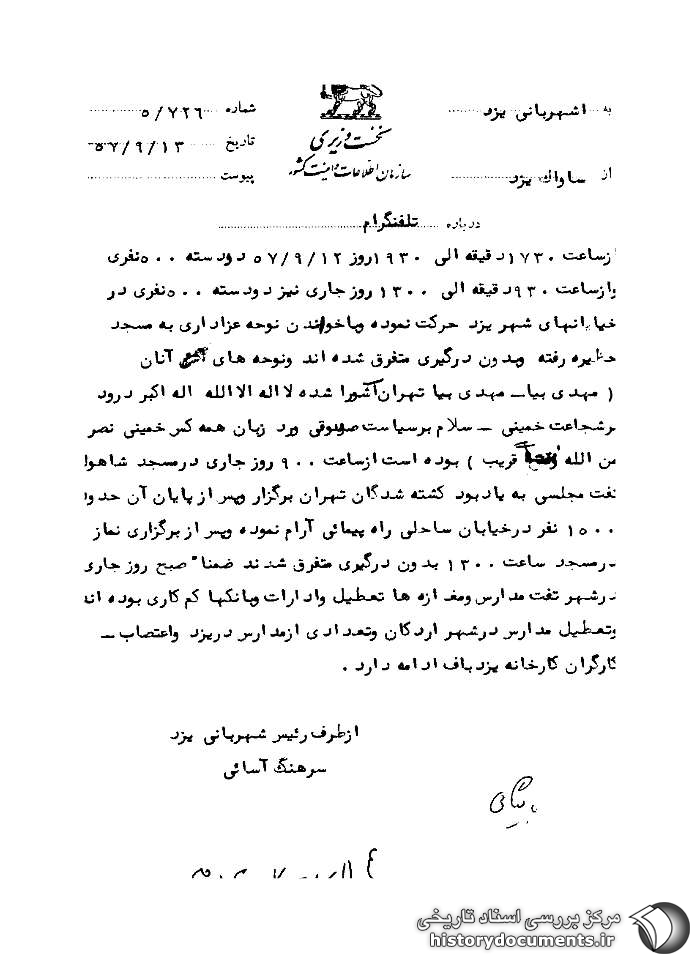 به اشهربانی یزد
شماره ۵/۷۲۶
نخست وزیری
تاریخ ۵۷/۹/۱۳
سازمان اطلاعات و امنیت کشور
پیوست
از ساواك یزد
درباره تلفنگرام
ازساعت ۱۷۳۰دقیقه الی ۱۹۳۰روز ۵۷/۹/۱۲ دودسته ۵۰۰نفری
وازساعت ۹۳۰دقیقه الی ۱۳۰۰ روز جاری نیز دودسته ۵۰۰نفری در
خیابانهای شهر یزد حرکت نموده وباخواندن نوحه عزاداری به مسجد
حظیره رفته وبدون درگیری متفرق شده اند ونوحه های آنان
( مهدی بیا ــ مهدی بیا تهران عاشورا شده لااله الاالله اله اکبر درود
برشجاعت خمینی ــ سلام برسیاست صدوقی ورد زبان همه کس خمینی نصر
من الله قریب ) بوده است ازساعت ۹۰۰ روز جاری درمسجد شاهولی
تفت مجلسی به یادبود کشته شدگان تهران برگزار وپس از پایان آن حدود
۱۵۰۰ نفر درخیابان ساحلی راه پیمائی آرام نموده وپس از برگزاری نماز
درمسجد ساعت ۱۳۰۰ بدون درگیری متفرق شدند ضمنا" صبح روز جاری
درشهر تفت مدارس ومغازه ها تعطیل وادارات وبانکها کم کاری بوده اند
وتعطیل مدارس درشهر اردکان وتعدادی ازمدارس دریزد واعتصاب ــ
کارگران کارخانه یزدباف ادامه دارد .
ازطرف رئیس شهربانی یزد
سرهنگ آسائی
مرکز بررسی اسناد تاریخی
historydocuments.ir